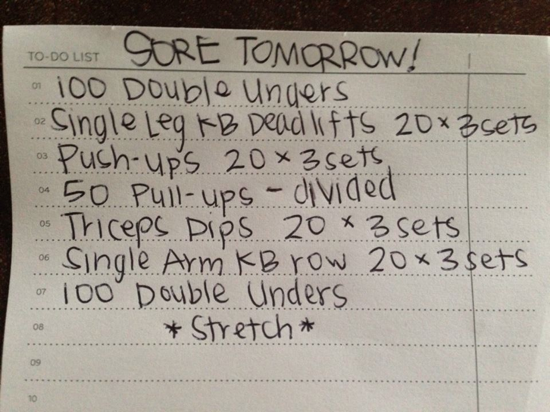 TO-DO LIST SORE TOMORROW!
01 100 Double Unders
02 Single Leg KB Deadlifts 20 x 3 sets
03 Push-ups 20 x 3 sets
04 50 Pull-ups - divided
05 Triceps Dips 20 x 3 sets
06 Single Arm KB row 20 x 3 sets
07 100 Double Unders
08 *Stretch*
09
10